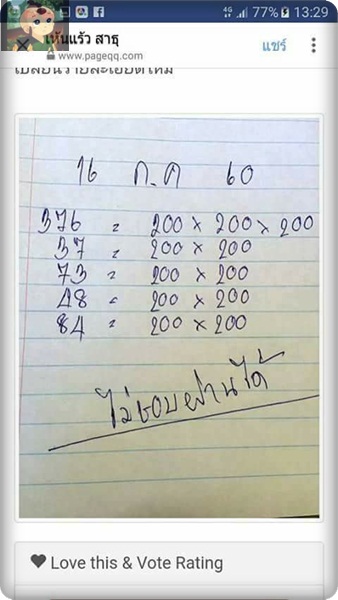 4G 77% 13:29
เห็นแร้ว สาธุ
www.pageqq.com
แชร์
เปลี่ยนรายละเอียดใหม่
16 ก.ค 60
376 = 200 x 200 x 200
37 = 200 x 200
73 = 200 x 200
48 = 200 x 200
84 = 200 x 200
ไม่ชอบผ่านได้
Love this & Vote Rating